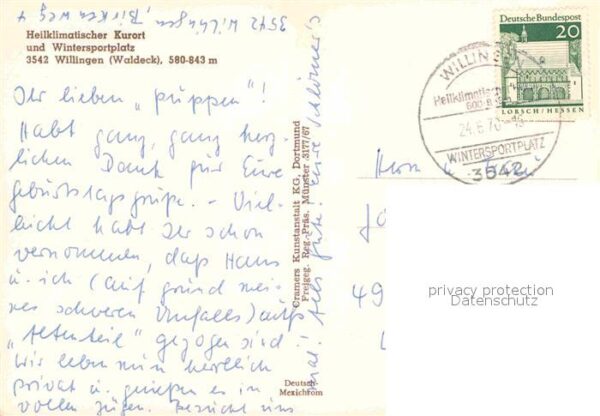 3542 Willingen, Birkenweg 4
Heilklimatischer Kurort
und Wintersportplatz
3542 Willingen (Waldeck), 580-843 m
Ihr lieben „püppen"!
Habt ganz, ganz herz
lichen Dank für Eure
Geburtstagsgrüße. - Viel-
leicht habt Ihr schon
vernommen, daß Hans
u. ich (auf grund mei
nes schweren Unfalls) aufs
„Altenteil" gezogen sind.
Wir leben nun herrlich
privat u. genießen es in
vollen Zügen. Besucht uns
mal! Alles gute! eure Schlömer's
Cramers Kunstanstalt KG, Dortmund
Freigeg. Reg.-Präs. Münster 3177/67
Deutsch
Mexichrom
Deutsche Bundespost
20
LORSCH/HESSEN
WILLINGEN
Heilklimatisch
24.6.70
WINTERSPORTPLATZ
3542
Herrn
49
privacy protection
Datenschutz